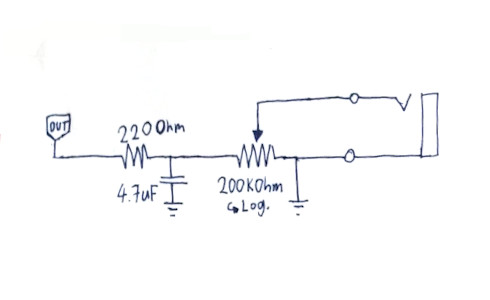 OUT
220Ohm
4.7uF
200KOhm
↳Log.